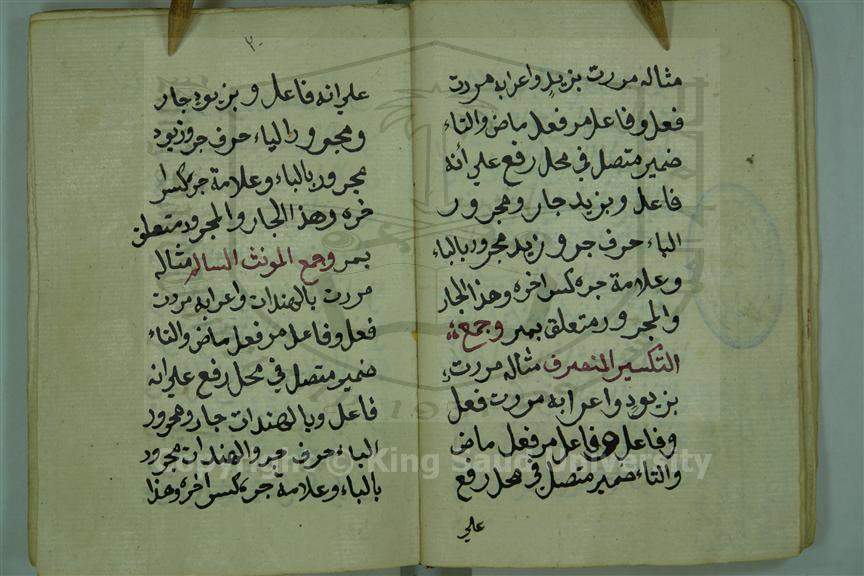 مثاله مررت بزيد واعرابه مررت
فعل وفاعل مر فعل ماض والتاء
ضمير متصل في محل رفع على أنه
فاعل وبزيد جار ومجرور
الباء حرف جر وزيد مجرور بالباء
وعلامة جره كسر اخره وهذا الجار
والمجرور متعلق بمر وجمع
التكسير المنصرف مثاله مررت
بزيود واعرابه مررت فعل
وفاعل مر فعل ماض
والتاء ضمير متصل في محل رفع
على
٣٠
على انه فاعل وبزيود جار
ومجرور الباء حرف جر وزيود
مجرور بالباء وعلامة جره كسر ا
خره وهذا الجار والمجرور متعلق
بمر وجمع المونث السالم مثاله
مررت بالهندات واعرابه مررت
فعل وفاعل مر فعل ماض والتاء
ضمير متصل في محل رفع على انه
فاعل وبالهندات جار ومجرور
الباء حرف جر والهندات مجرور
بالباء وعلامة جره كسر اخره وهذا
Copyright © King Saud University